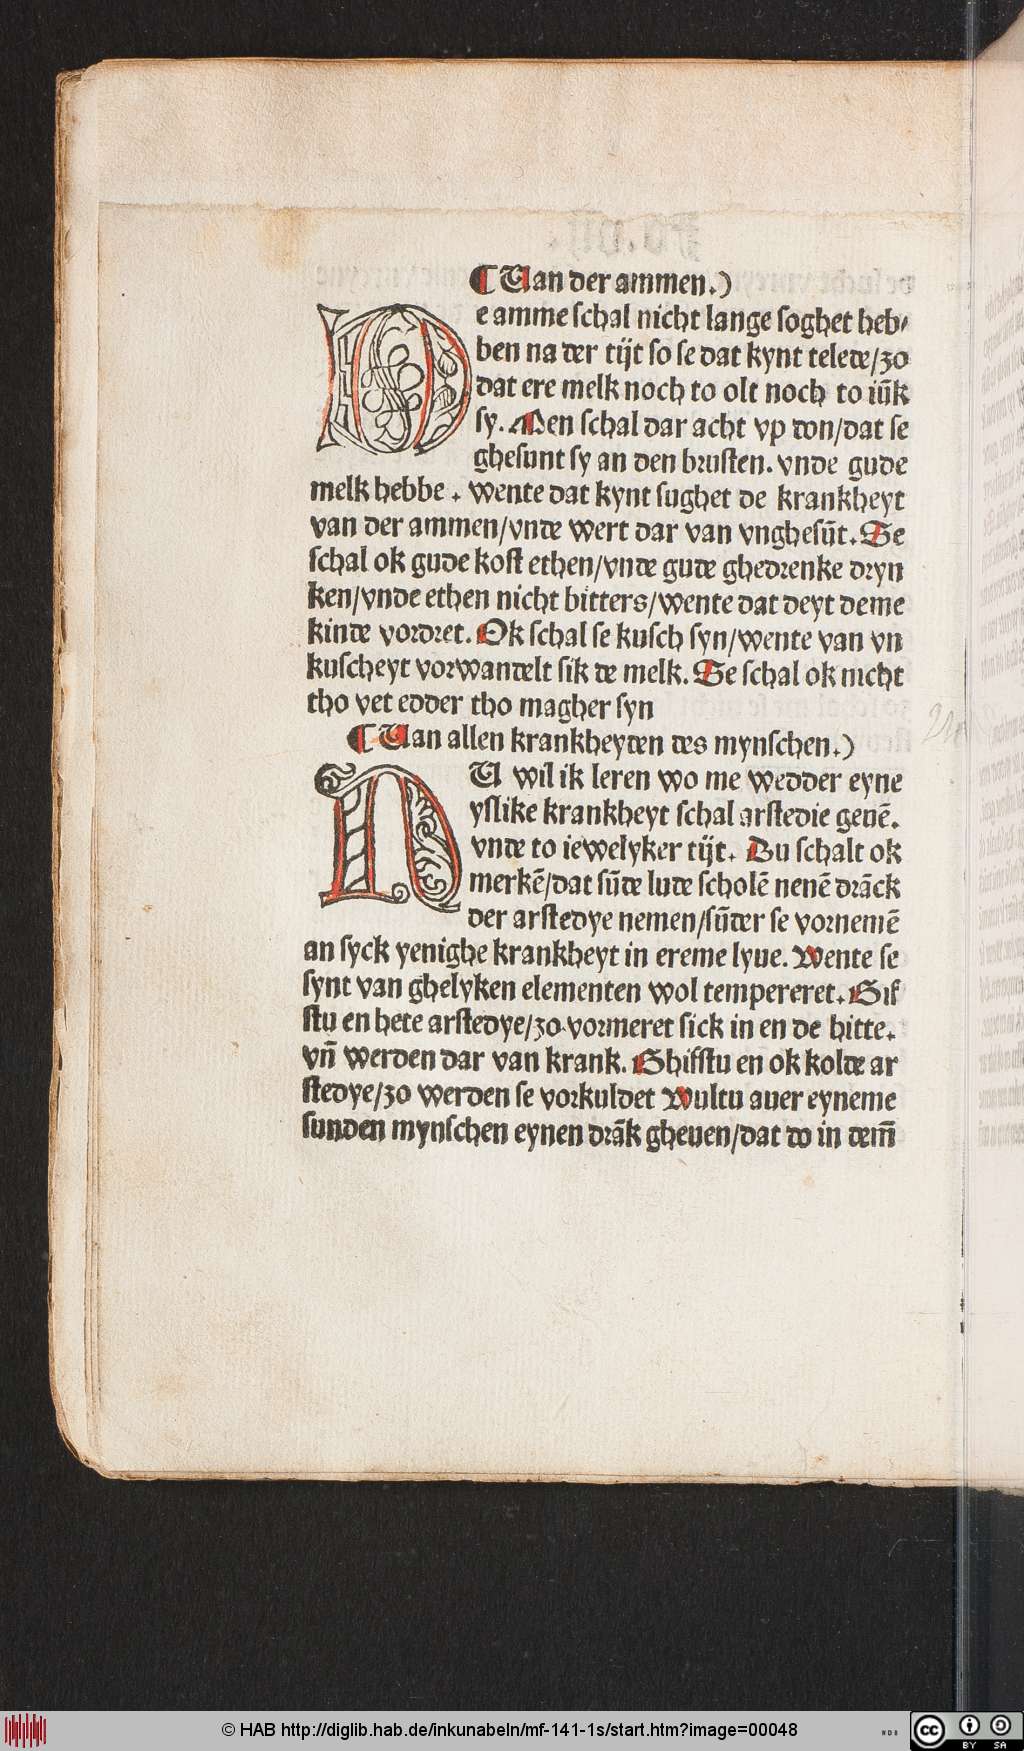 ¶ Uan der ammen.)
De amme ſchal nicht lange ſoghet heb⸗
ben na der tijt ſo ſe dat kynt telede/zo
dat ere melk noch to olt noch to iūk
ſy. Men ſchal dar acht vp don/dat ſe
gheſunt ſy an den bruſten. vnde gude
melk hebbe. wente dat kynt ſughet de krankheyt
van der ammen/vnde wert dar van vngheſūt. Se
ſchal ok gude koſt ethen/vnde gude ghedrenke dryn
ken/vnde ethen nicht bitters/wente dat deyt deme
kinde vordret. Ok ſchal ſe kuſch ſyn/wente van vn
kuſcheyt vorwandelt ſik de melk. Se ſchal ok nicht
tho vet edder tho magher ſyn
¶ Uan allen krankheyden des mynſchen.)
NU wil ik leren wo me wedder eyne
yſlike krankheyt ſchal arſtedie geuē.
vnde to iewelyker tijt. Du ſchalt ok
merkē/dat ſūde lude ſcholē nenē drāck
der arſtedye nemen/ſūder ſe vornemē
an ſyck yenighe krankheyt in ereme lyue. Wente ſe
ſynt van ghelyken elementen wol tempereret. Gif
ſtu en hete arſtedye/zo vormeret ſick in en de hitte.
vn̄ werden dar van krank. Ghifſtu en ok kolde ar
ſtedye/zo werden ſe vorkuldet Wultu auer eyneme
ſunden mynſchen eynen drāk gheuen/dat do in dem̄
© HAB http://diglib.hab.de/inkunabeln/mf-141-1s/start.htm?image=00048
cc BY SA